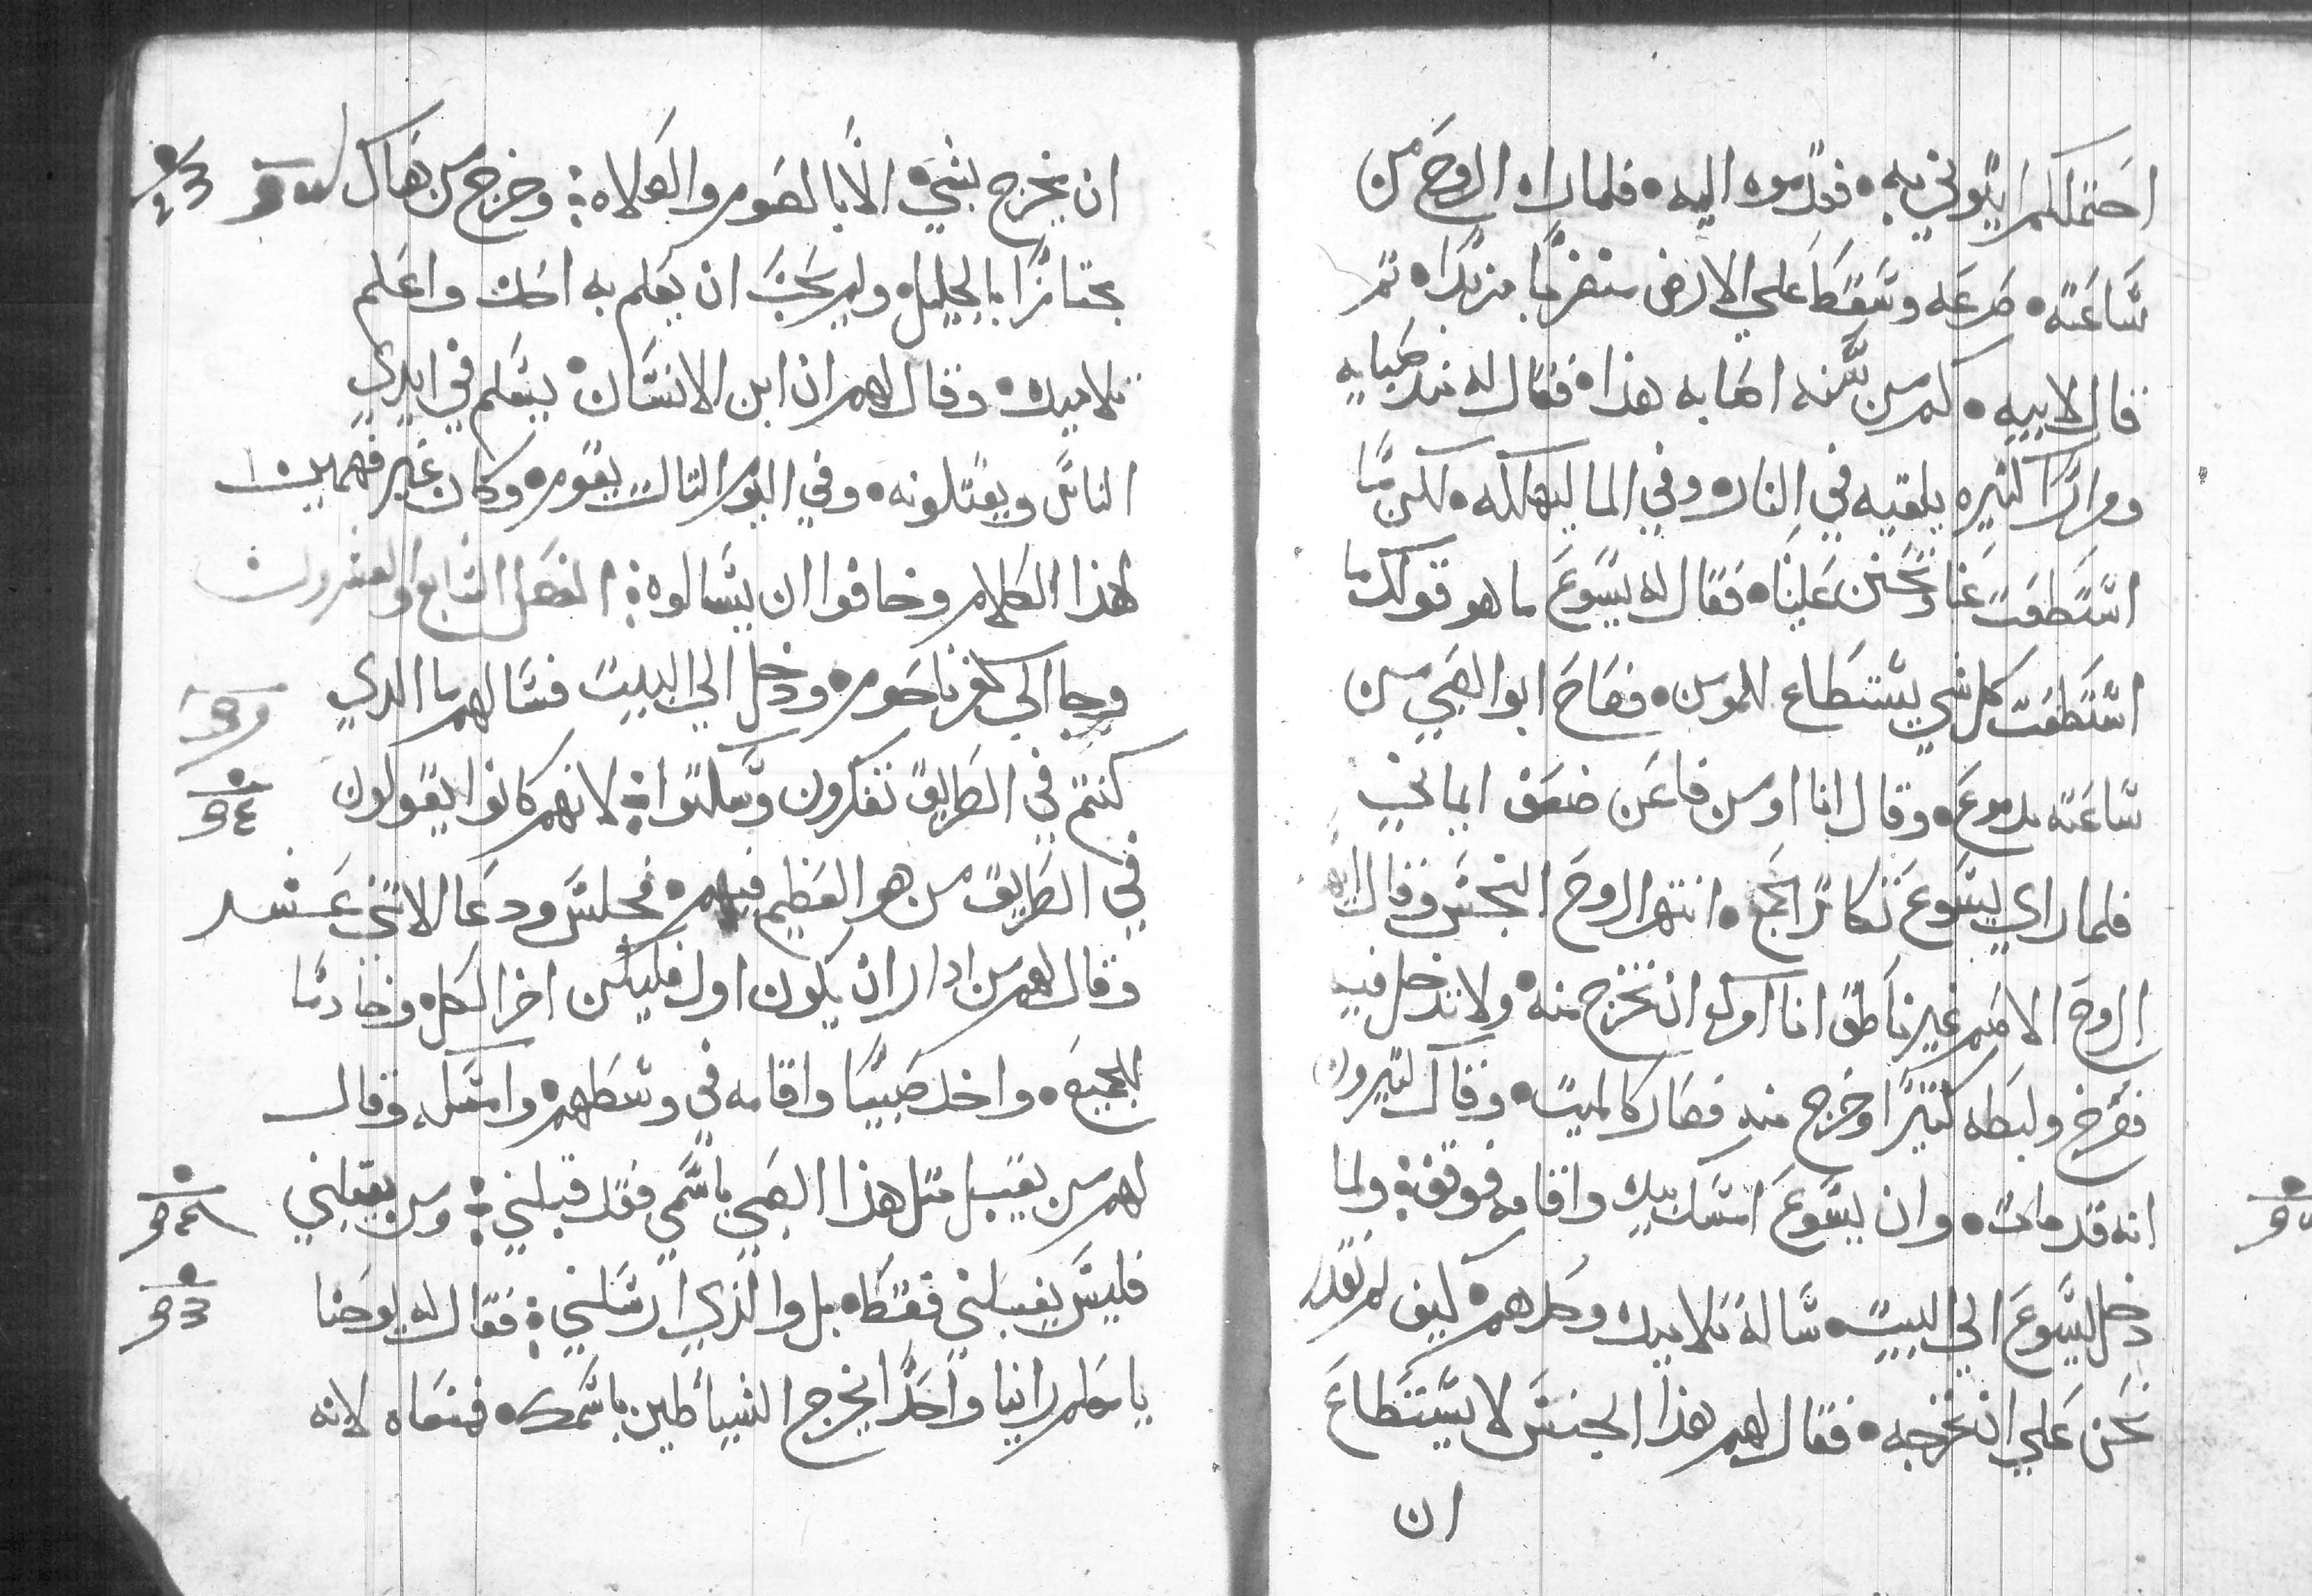 احتملكم ايتوني به • فقدموه اليه • فلما راه الروح من
ساعته • صرعه وسقط علي الارض متمرغا مزبدا • تم
قال لابيه • كم من سنه اصابه هذا • فقال له مند صباه
ومرارا كتيره يلقيه في النار • وفي الما ليهلكه • لكن ما
استطعت عنا وتحنن علينا • فقال له يسوع ما هو قولك ما
استطعت كل شي يستطاع للمومن • فصاح ابو الصبي من
ساعته بدموع • وقال انا اومن فاعن ضعف ايماني
فلما راي يسوع تكاتر الجمع • انتهر الروح النجس وقال
الروح الاصم غير ناطق انا امرك ان تخرج منه • ولا تدخل فيه
فصرخ ولبطه كتيرا وخرج منه فصار كالميت • وقال كتيرون
انه قد مات • وان يسوع امسك بيده واقامه فوقف : ولما
دخل يسوع الي البيت • ساله تلاميده وحدهم • كيف لم نقدر
نحن علي ان نخرجه • فقال لهم هذا الجنس لا يستطاع
ان
ان يخرج بشي • الا بالصوم والصلاه : وخرج من هناك
مجتازا بالجليل • ولم يحب ان يعلم به احد واعلم
تلاميده • وقال لهم ان ابن الانسان • يسلم في ايدي
الناس ويقتلونه • وفي اليوم التالت يقوم • وكان غير فهمين
لهذا الكلام وخافوا ان يسالوه : الفصل السابع والعشرون
وجا الي كفرناحوم • ودخل الي البيت فسالهم ما الدي
كنتم في الطريق تفكرون وسكتوا : لانهم كانوا يقولون
في الطريق من هو العظيم فيهم • فجلس ودعا الاتني عشر
وقال لهم من اراد ان يكون اول فليكن اخر الكل • وخادما
للجميع • واخد صبيا واقامه في وسطهم • وامسكه وقال
لهم من يقبل متل هذا الصبي باسمي فقد قبلني : ومن يقبلني
فليس يقبلني فقط • بل والذي ارسلني : فقال له يوحنا
يا معلم راينا واحدا يخرج الشياطين باسمك • فمنعناه لانه